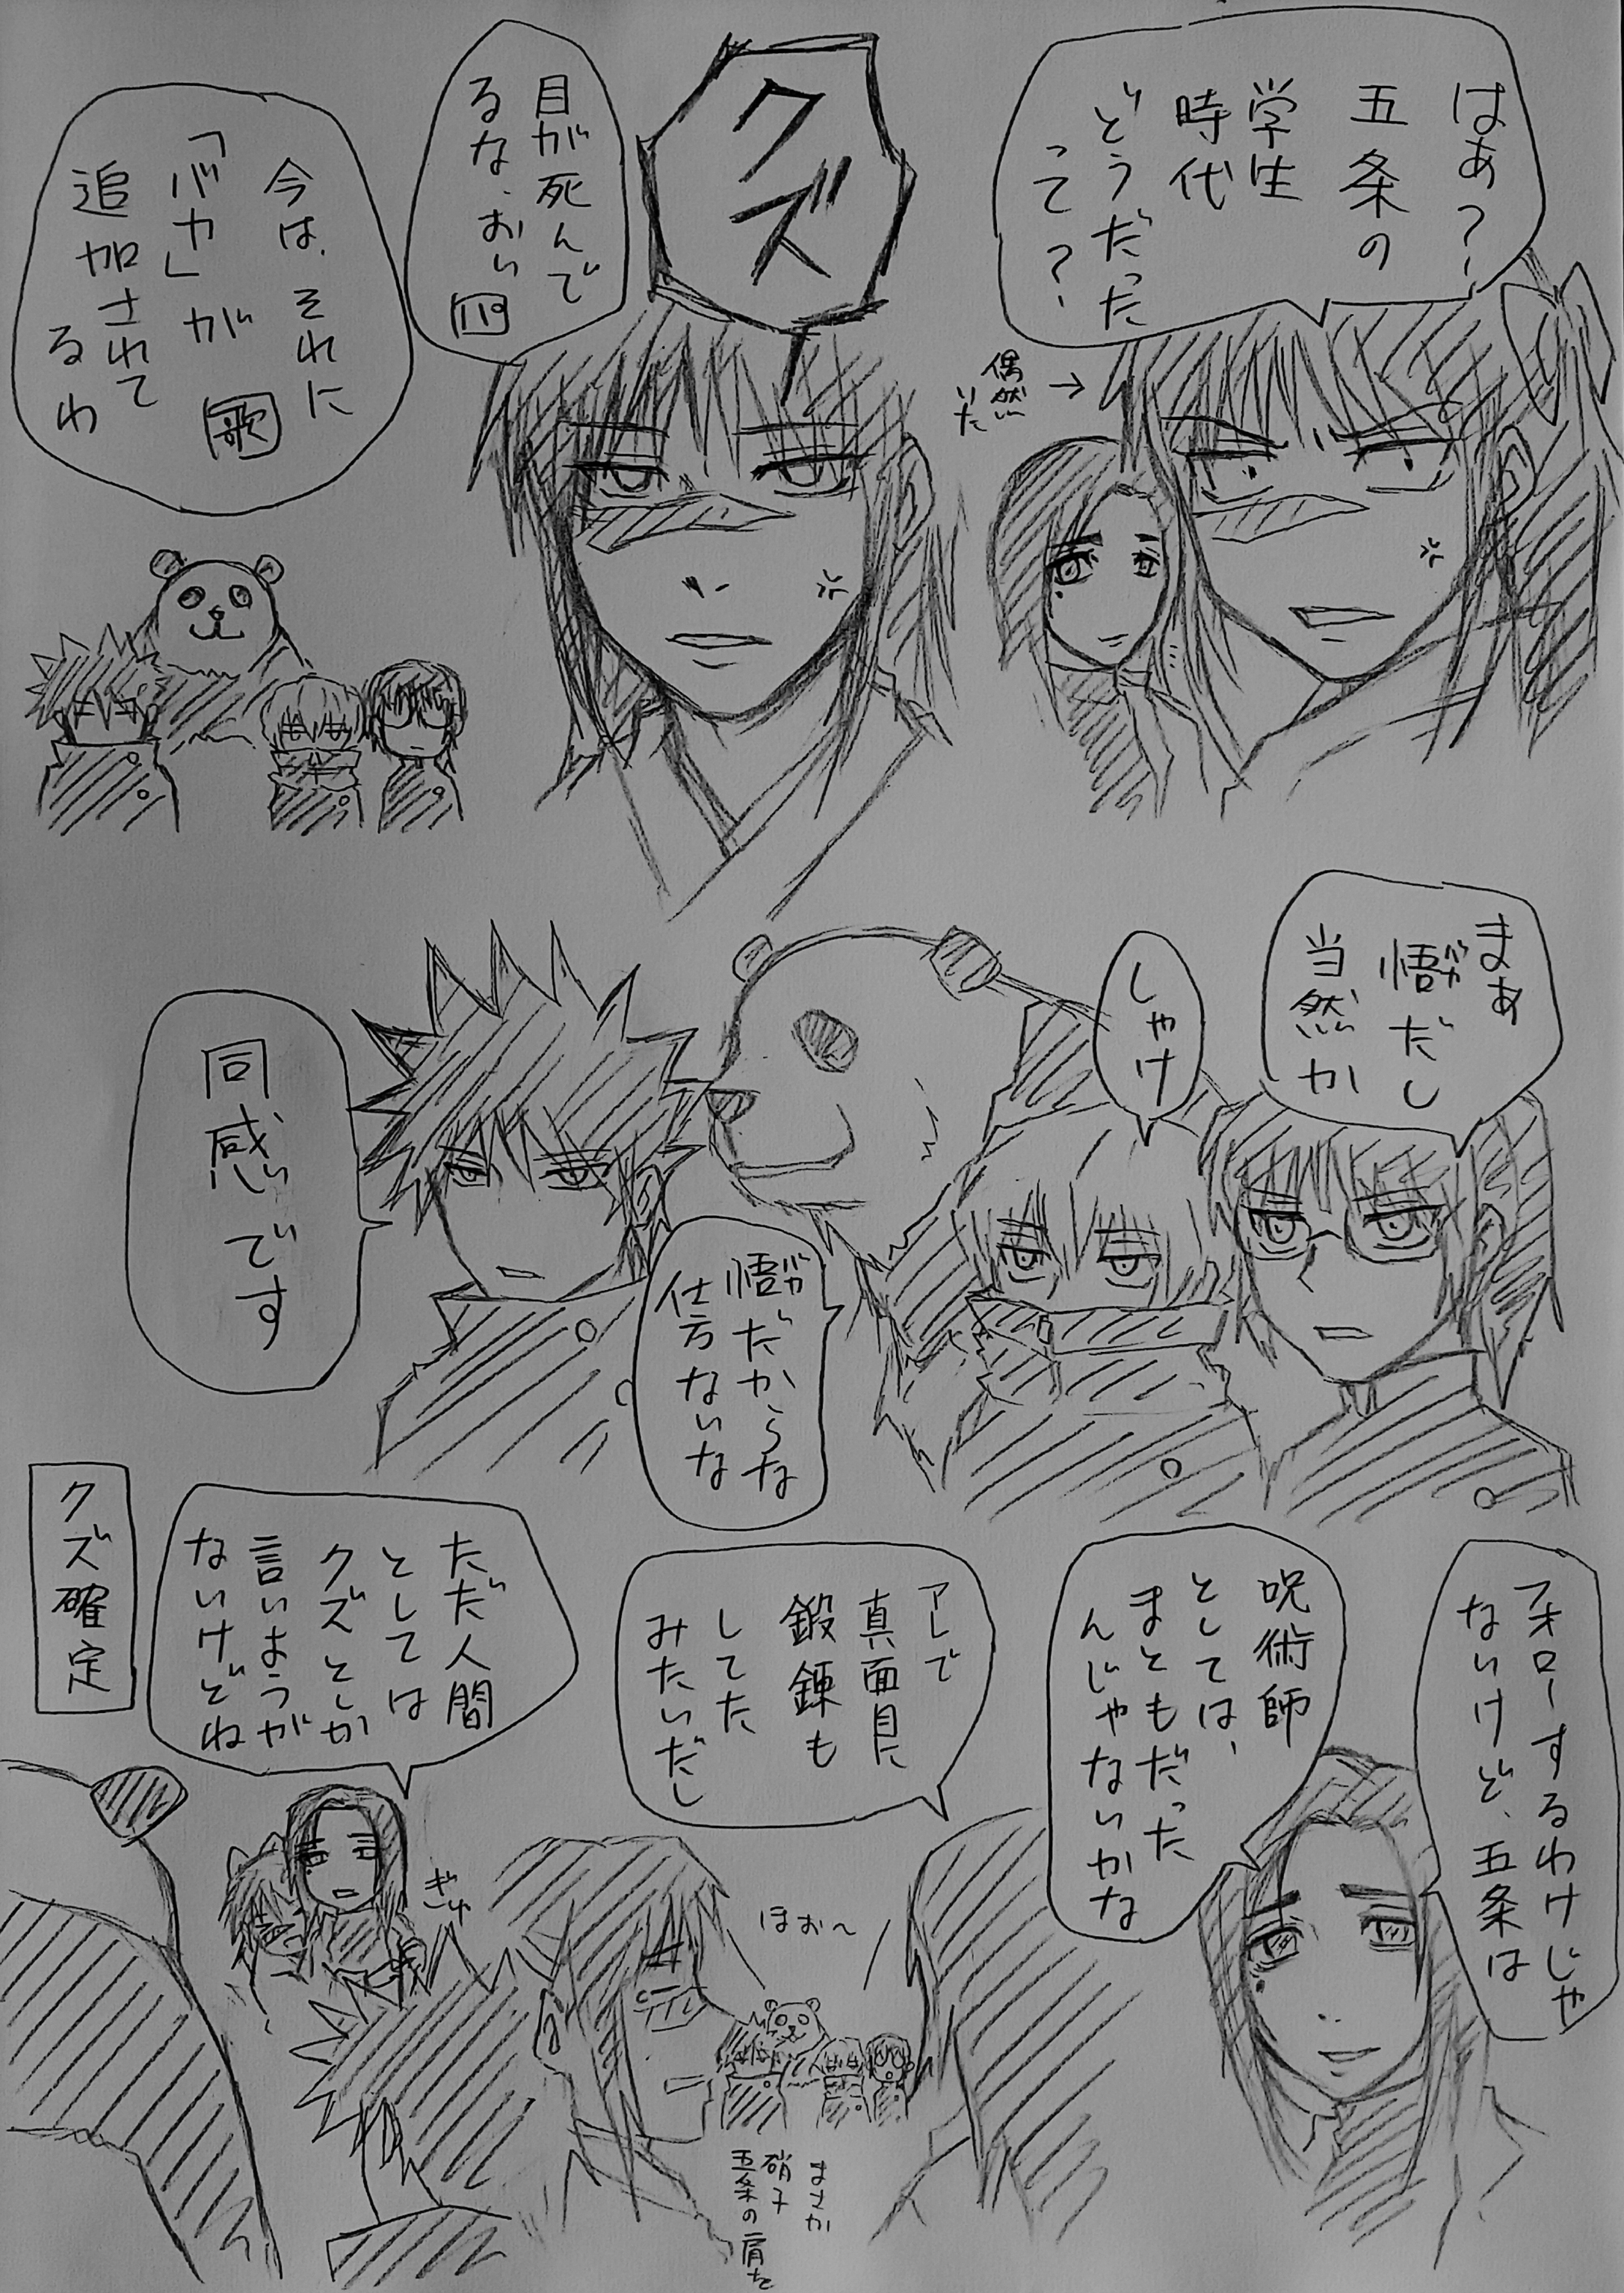 はあ？
五条の
学生
時代
どうだった
って？
偶然
いた
クズ
目が死んで
るな、おい
今は、それに
「バカ」が
追加されて
るわ
歌
まあ
悟がだし
当然か
しゃけ
悟がだからな
仕方ないな
同感です
フォローするわけじゃ
ないけど、五条は
呪術師
としては、
まともだった
んじゃないかな
アレで
真面目に
鍛錬も
してた
みたいだし
ほお〜
まさか
硝子
五条の肩を
ただ人間
としては
クズとしか
言いようが
ないけどね
ぎゅ
クズ確定